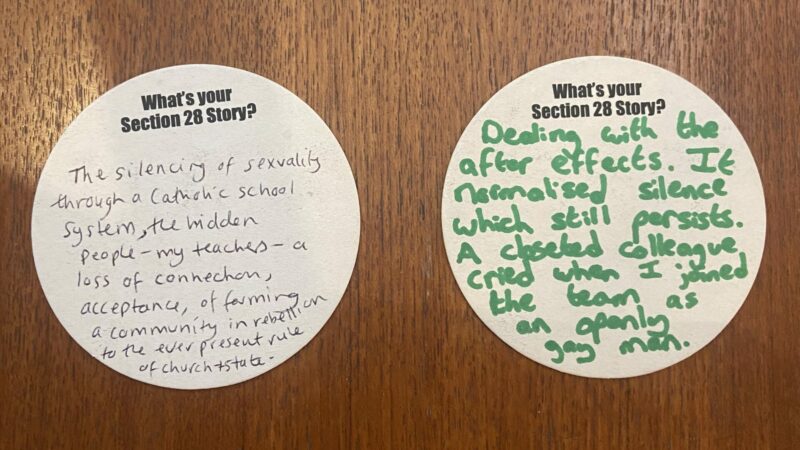 What's your
Section 28 Story?
The silencing of sexuality
through a Catholic school
system, the hidden
people - my teaches - a
loss of connection,
acceptance, of forming
a community in rebellion
to the ever present rule
of church + state.
What's your
Section 28 Story?
Dealing with the
after effects. It
normalised silence
which still persists.
A closeted colleague
cried when I joined
the team as
an openly
gay man.